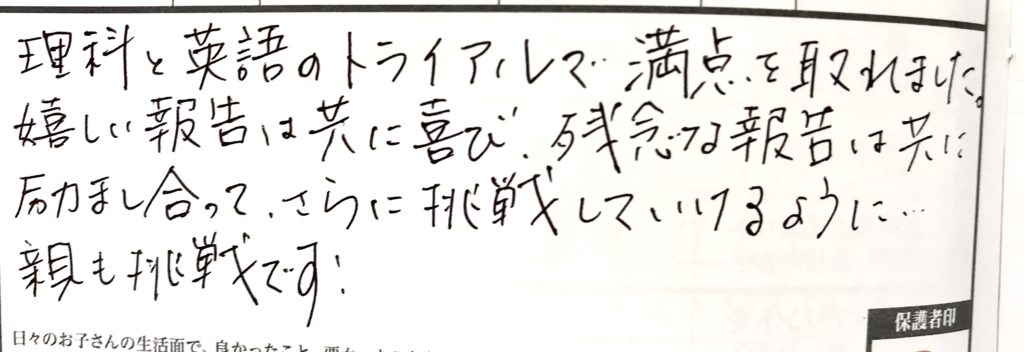 理科と英語のトライアルで満点を取れました。
嬉しい報告は共に喜び、残念な報告は共に
励まし合って、さらに挑戦していけるように…
親も挑戦です!
保護者印
日々のお子さんの生活面で、良かったこと、